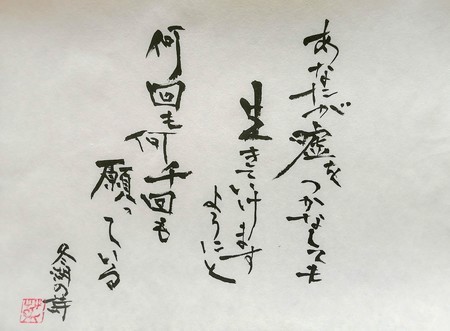 あなたが嘘をつかなくても
生きていけます
ようにと
何回も何千回も
願っている
冬湖の詩